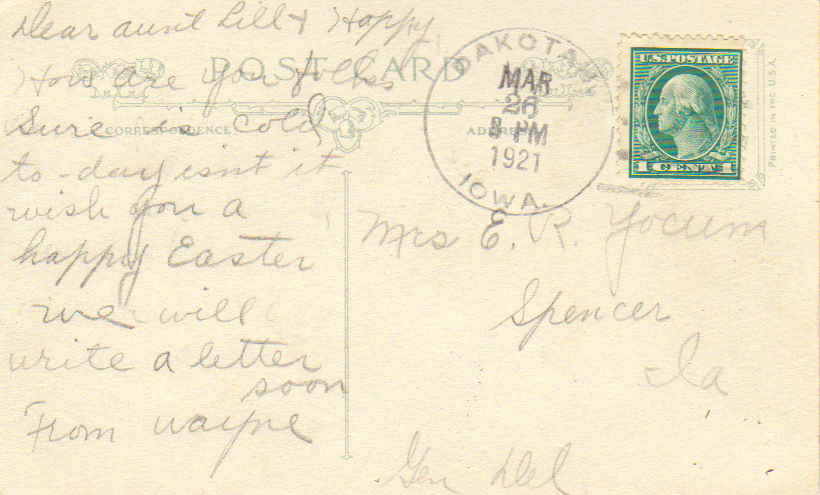 Dear aunt Lill & Happy
How are you folks
Sure is cold
to-day isn't it
wish you a
happy Easter
we will
write a letter
soon
From Wayne
POST CARD
CORRESPONDENCE
ADDRESS
DAKOTA
MAR
26
3 PM
1921
IOWA.
U.S. POSTAGE
1 CENT 1
PRINTED IN THE U.S.A.
Mrs E. R. Yocum
Spencer
Ia
Gen Del